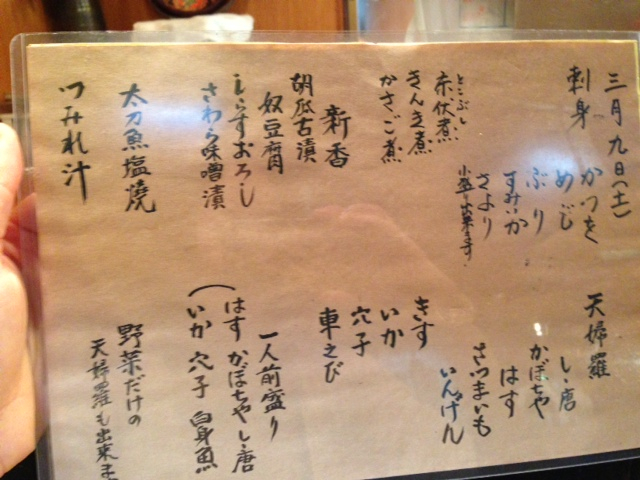 三月九日(土)
刺身
かつを
めじ
ぶり
すみいか
さより
小盛も出来ます。
とこぶし
赤伏煮
きんき煮
かさご煮
新香
胡瓜古漬
奴豆腐
しらすおろし
さわら味噌漬
太刀魚塩焼
つみれ汁
天婦羅
しゝ唐
かぼちゃ
はす
さつまいも
いんげん
きす
いか
穴子
車えび
一人前盛り
(はす かぼちゃ しゝ唐
いか 穴子 白身魚
野菜だけの
天婦羅も出来ま